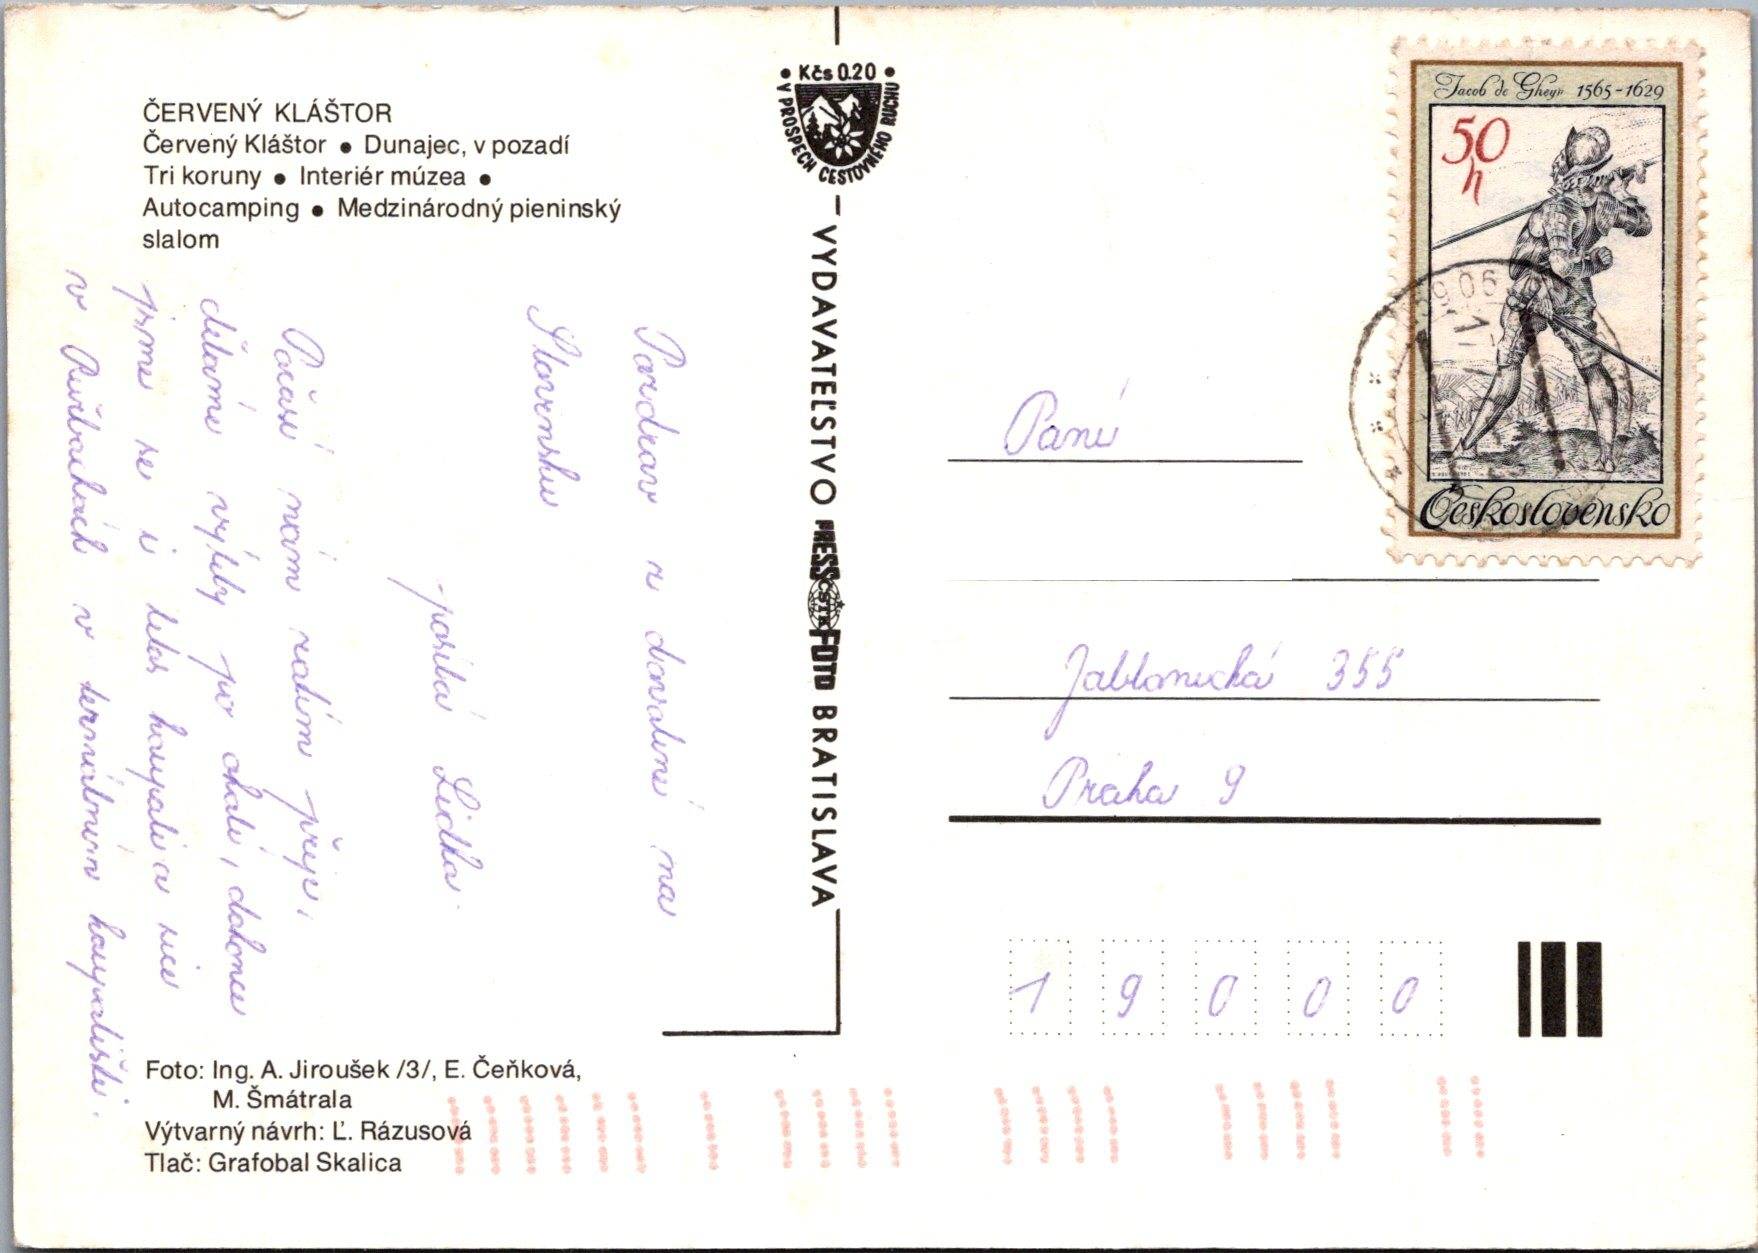 ČERVENÝ KLÁŠTOR
Červený Kláštor • Dunajec, v pozadí
Tri koruny • Interiér múzea •
Autocamping • Medzinárodný pieninský
slalom
Pozdrav z dovolené na
Slovensku
posílá Lidka.
Počasí nám zatím přeje,
děláme výlety po okolí, dokonce
jsme se i letos koupali a sice
v Ružbachách v termálním koupališti.
Foto: Ing. A. Jiroušek /3/, E. Čeňková,
M. Šmátrala
Výtvarný návrh: Ľ. Rázusová
Tlač: Grafobal Skalica
• Kčs 0.20 •
V PROSPECH CESTOVNÉHO RUCHU
VYDAVATEĽSTVO PRESSFOTO BRATISLAVA
ČSTK
Jacob de Gheyn 1565-1629
50
h
Československo
Paní
Jablonecká 355
Praha 9
1 9 0 0 0